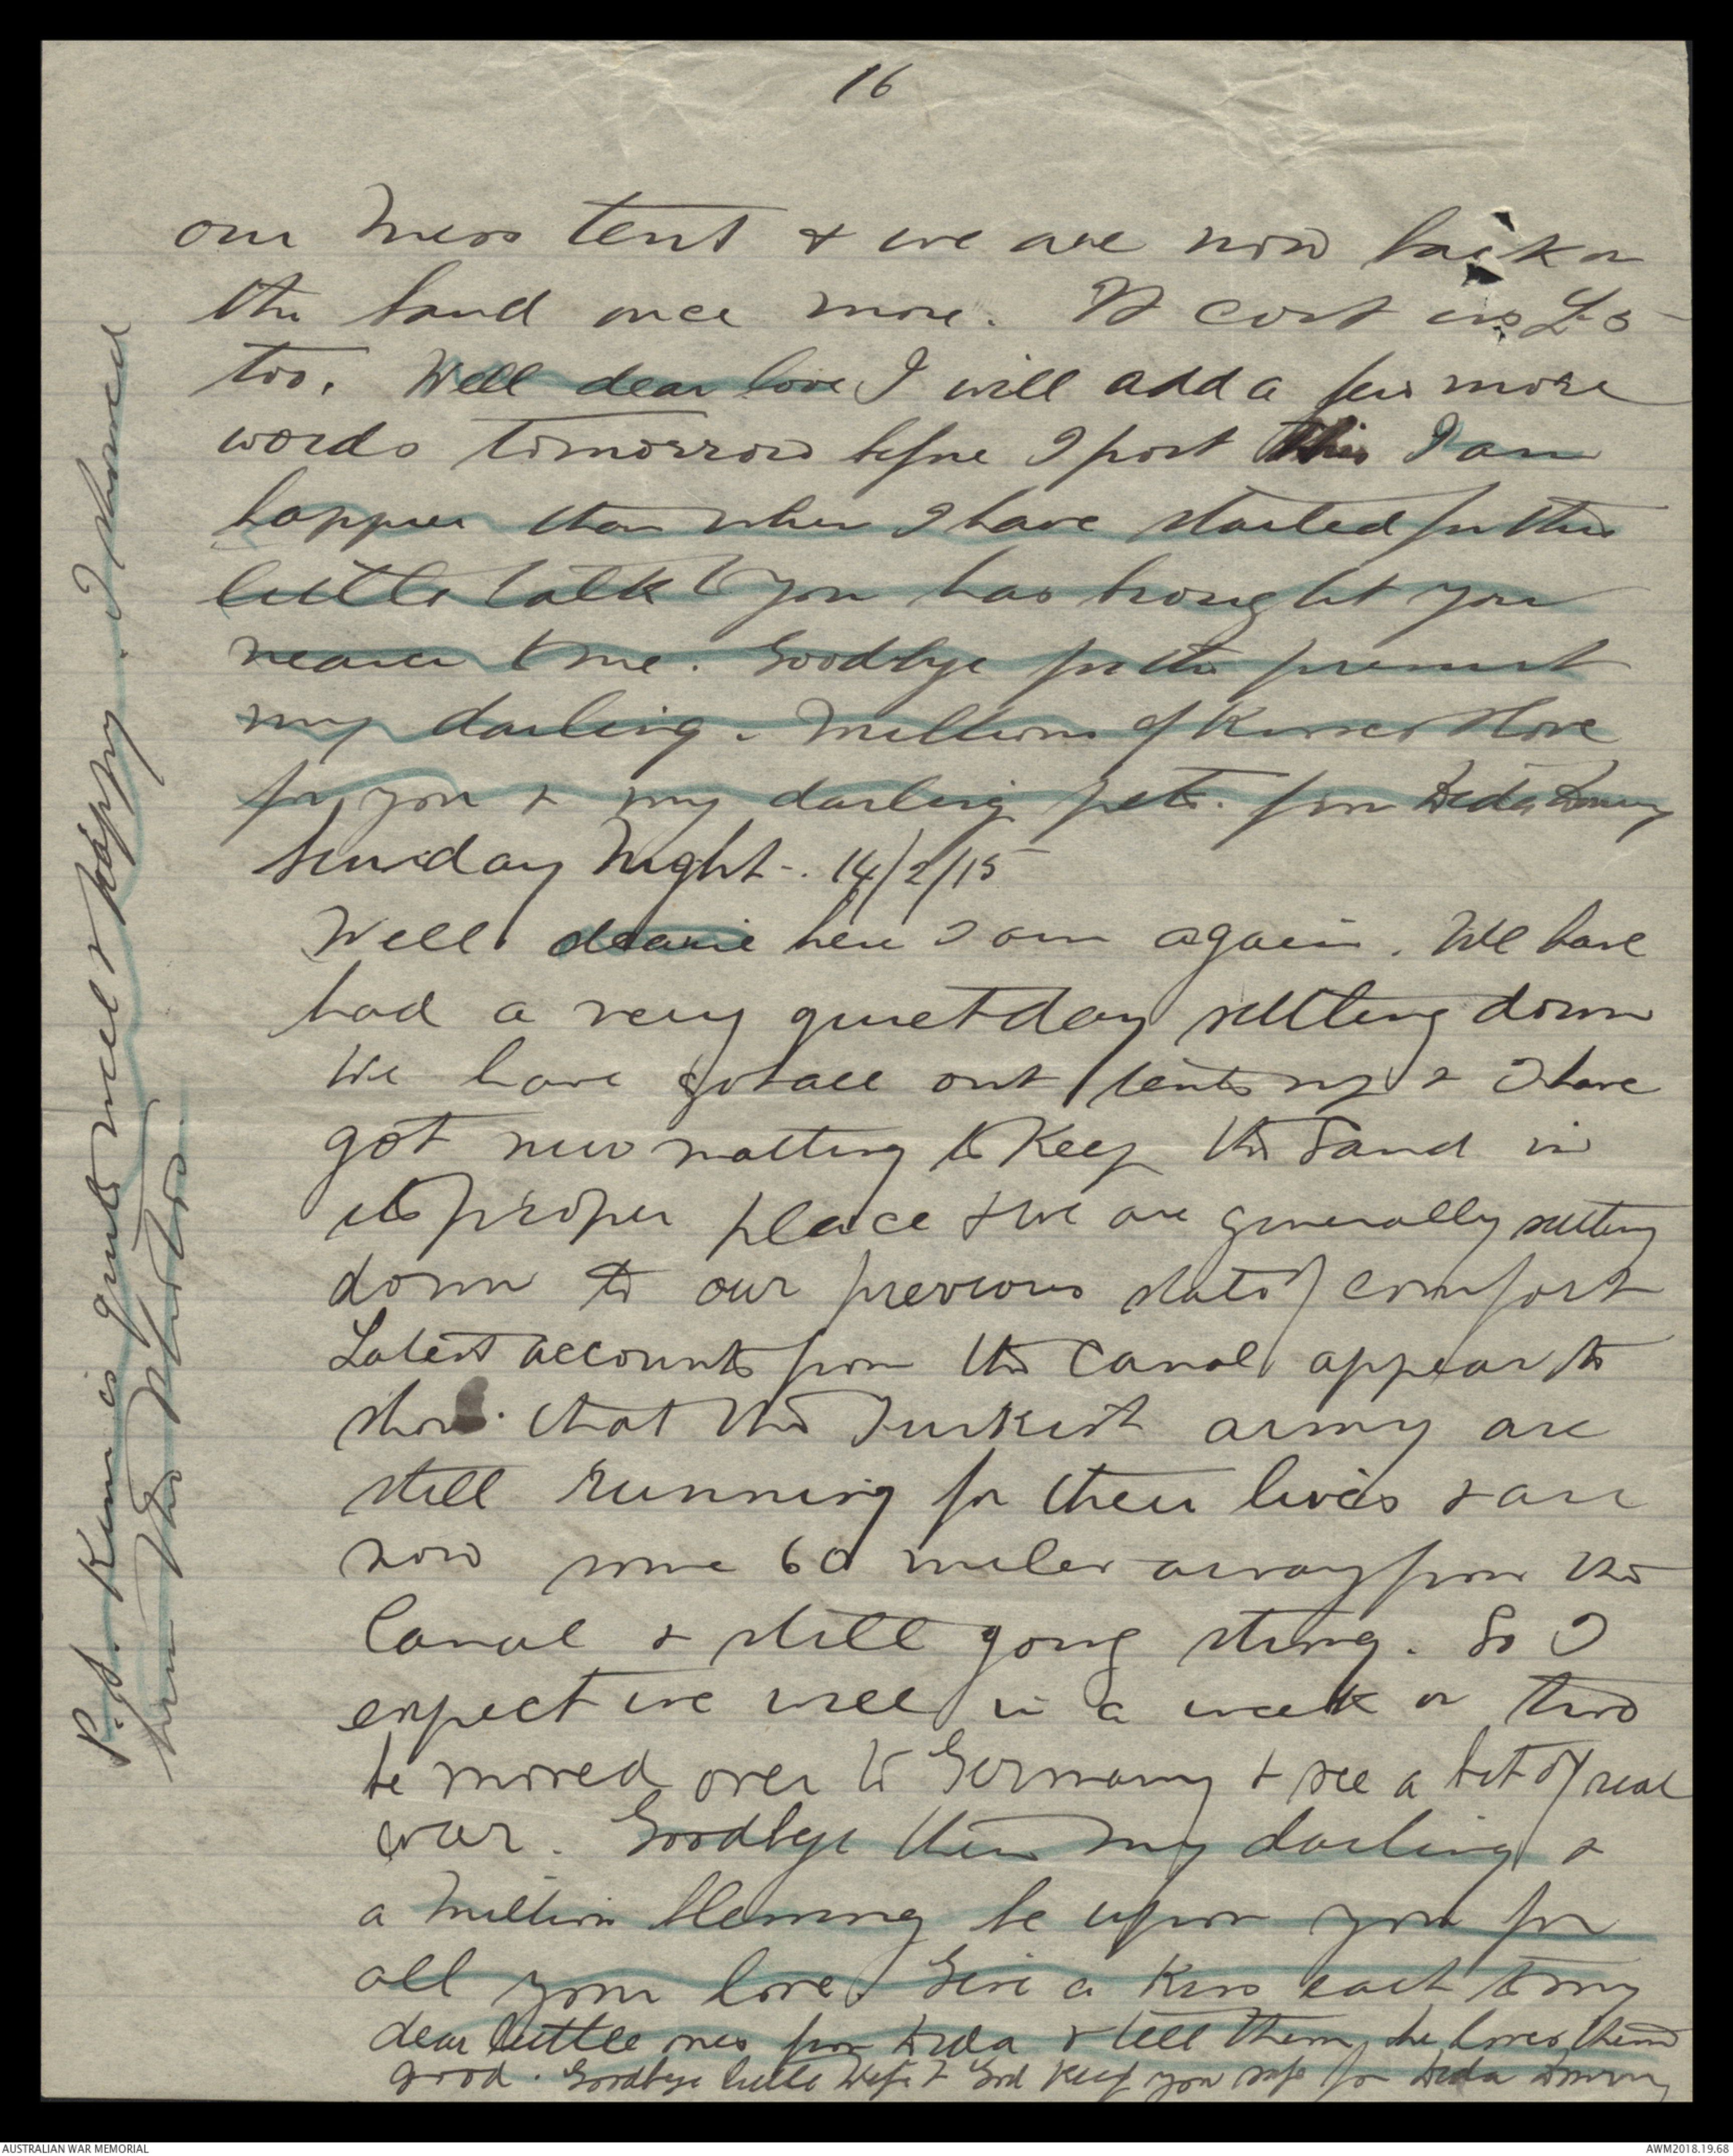 16
our Mess tent & we are now back on
the sand once more. It cost us £5
too. Well dear love I will add a few more
words tomorrow before I post this I am
happier than when I have started for this
little talk to you has brought you
nearer to me. Goodbye for the present
my darling. Millions of Kisses & love
for you & my darling pets. from Dida
Sunday Night-. 14/2/15
Well dearie here I am again. We have
had a very quiet day settling down
We have got all out tents up & I have
got new matting to keep the sand in
its proper place & we are generally settling
down to our previous state of comfort
Latest accounts from the Canal appear to
show that the Turkish army are
still running for their lives & are
now some 60 miles away from the
Canal & still going strong. So I
expect we will in a week or two
be moved over to Germany & see a bit of real
war. Goodbye then my darling &
a million blessing be upon you for
all your love. Give a Kiss each to my
dear little ones from Dida & tell them he loves them
good. Goodbye little Wife & God keep you safe for Dida
P.S. Kim is quite well & happy. I showed
him the photos.
AUSTRALIAN WAR MEMORIAL
AWM2018.19.68